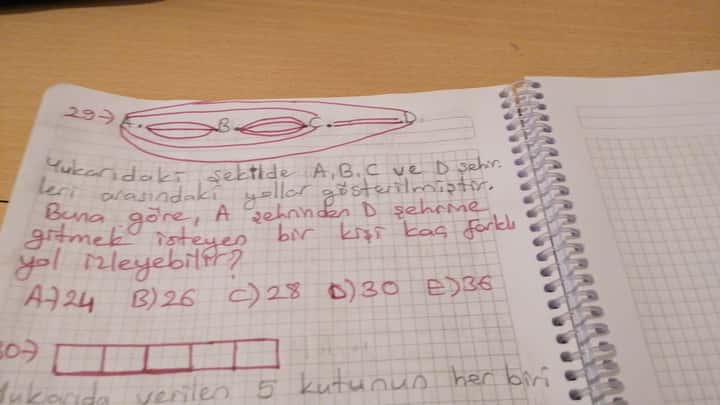 29→) A. B C. D
Yukarıdaki şekilde A, B, C ve D şehir-
leri arasındaki yollar gösterilmiştir.
Buna göre, A şehrinden D şehrine
gitmek isteyen bir kişi kaç farklı
yol izleyebilir?
A)24 B)26 C)28 D)30 E)36
30→)
Yukarıda verilen 5 kutunun her biri